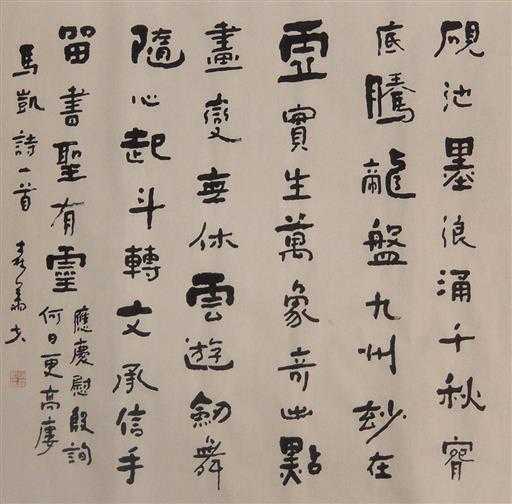 硯池墨浪涌千秋
底騰龍盤九州玅在
虛實生萬象奇此點
畫變無休雲遊劒舞
隨心起斗轉文承信手
留書聖有靈
應慶慰殷詢
何日更高廔
馬凱詩一首